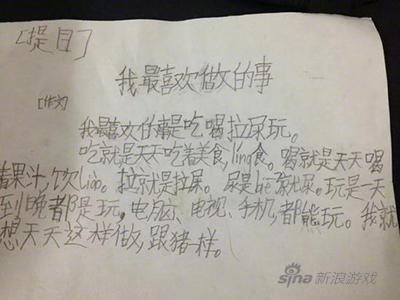 [提目]
我最喜欢做的事
[作文]
我最喜欢的事是吃喝拉尿玩。
吃就是天天吃着美食,ling食。喝就是天天喝
着果汁,饮liào。拉就是拉屎。尿是biē就尿。玩是一天
到晚者都是玩,电脑、电视、手机,都能玩。我就
想天天这样做,跟猪一样。
sina新浪游戏